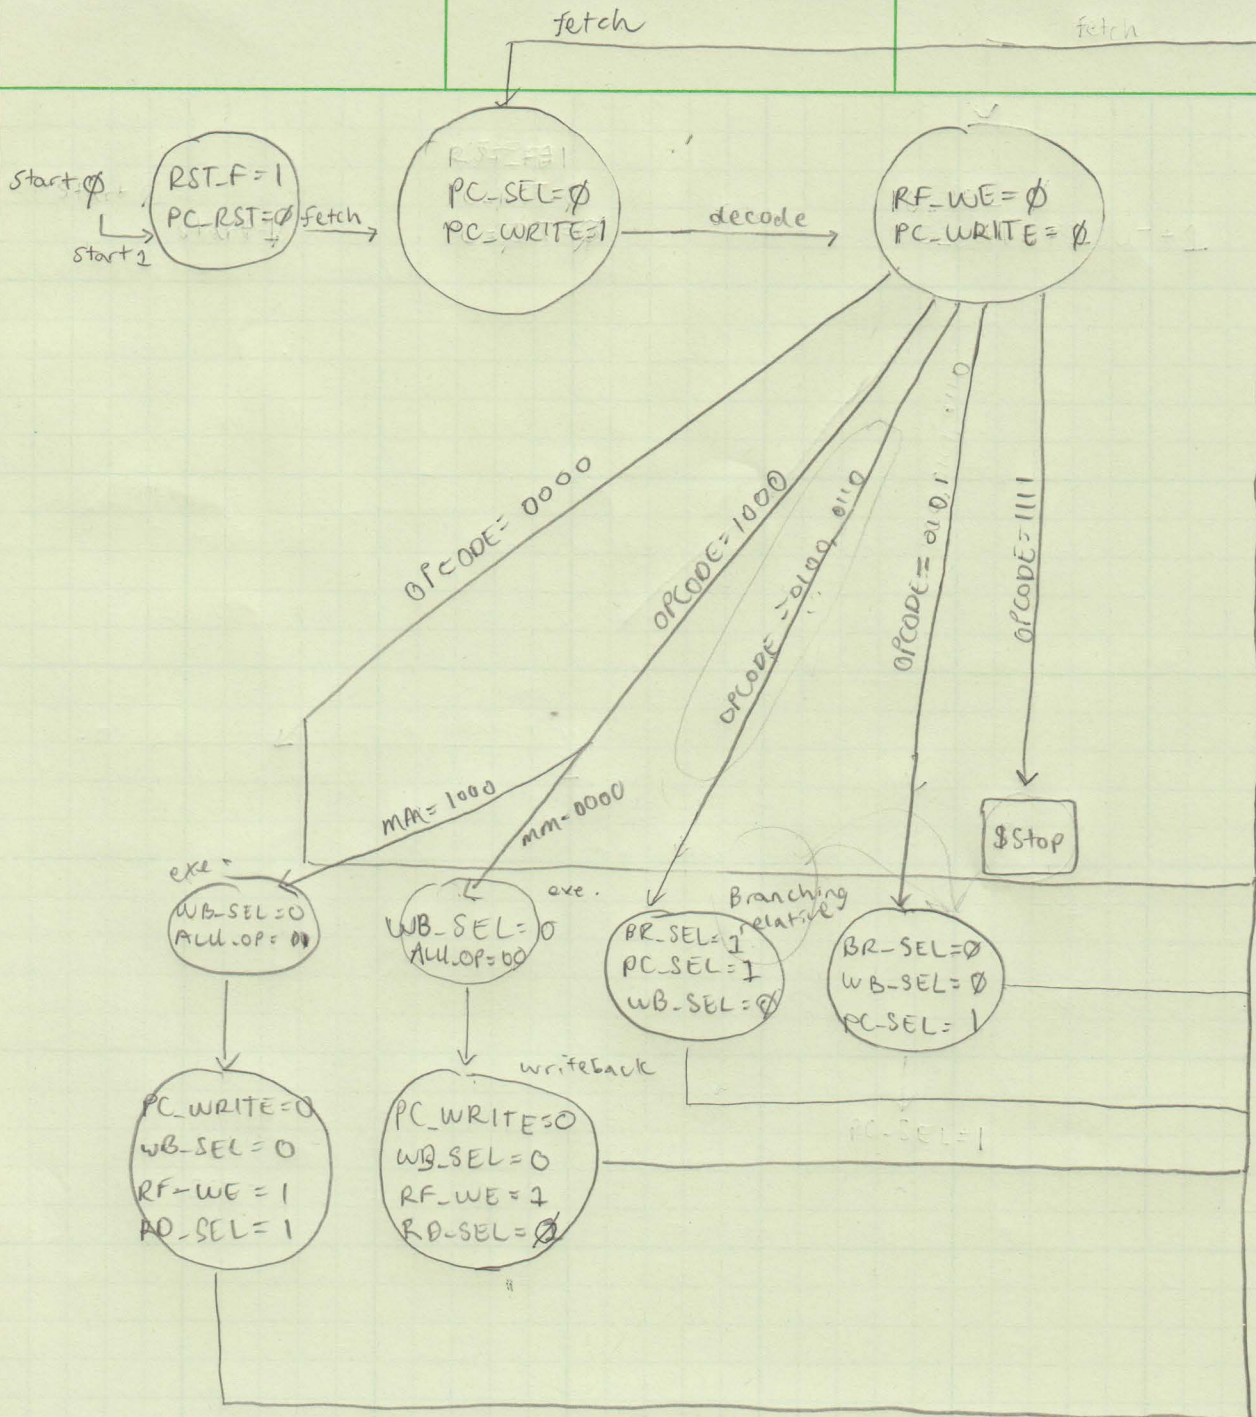 fetch
fetch
start Ø
start 1
RST_F=1
PC_RST=Ø
fetch
PC_SEL=Ø
PC_WRITE=1
decode
RF_WE=Ø
PC_WRITE=Ø
OPCODE=0000
OPCODE=1000
OPCODE=0100, 0110
OPCODE=0101
OPCODE=1111
MM=1000
MM=0000
$Stop
exe.
WB_SEL=0
exe.
WB_SEL=0
ALU_OP=00
Branching
relative
BR_SEL=1
PC_SEL=1
WB_SEL=Ø
BR_SEL=Ø
WB_SEL=Ø
PC_SEL=1
writeback
PC_WRITE=0
WB_SEL=0
RF_WE=1
RD_SEL=1
PC_WRITE=0
WB_SEL=0
RF_WE=1
RD_SEL=Ø
PC_SEL=1